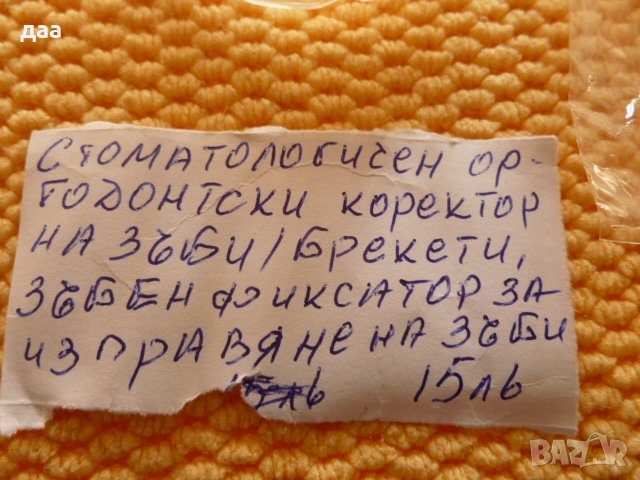 даа
Стоматологичен ор-
тодонтски коректор
на зъби/брекети,
зъбен фиксатор за
изправяне на зъби
15лв
BAZAR